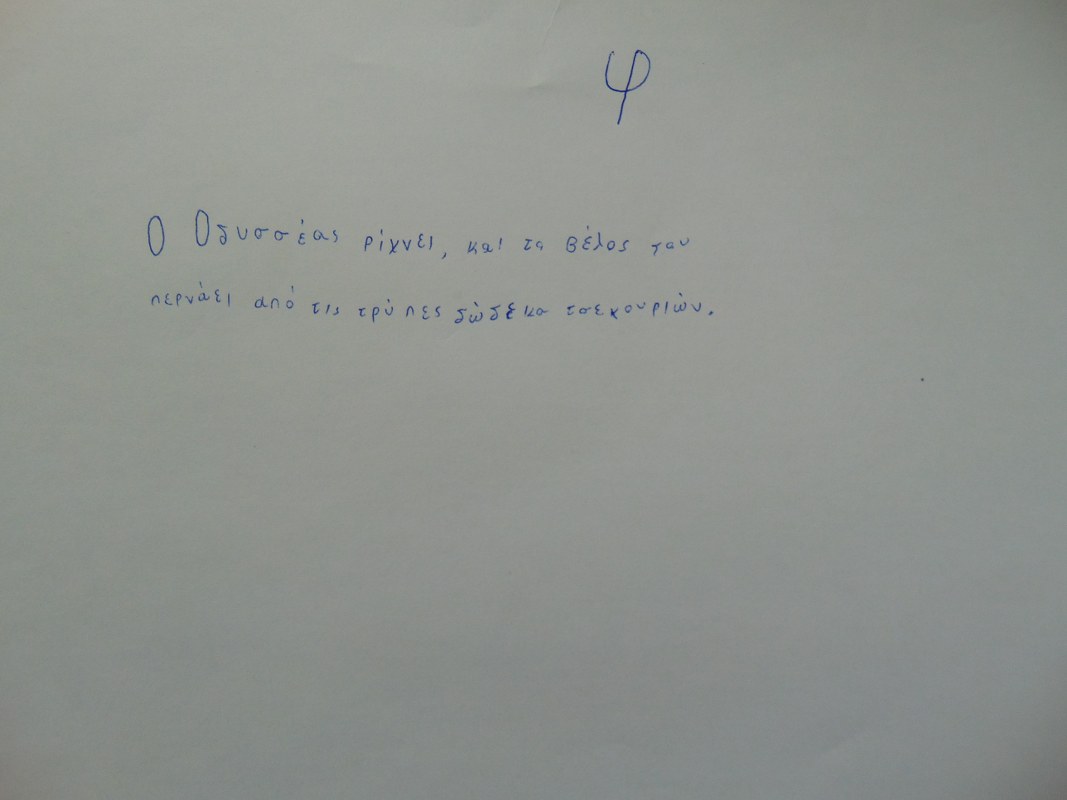 φ
Ο Οδυσσέας ρίχνει, και το βέλος του
περνάει από τις τρύπες δώδεκα τσεκουριών.